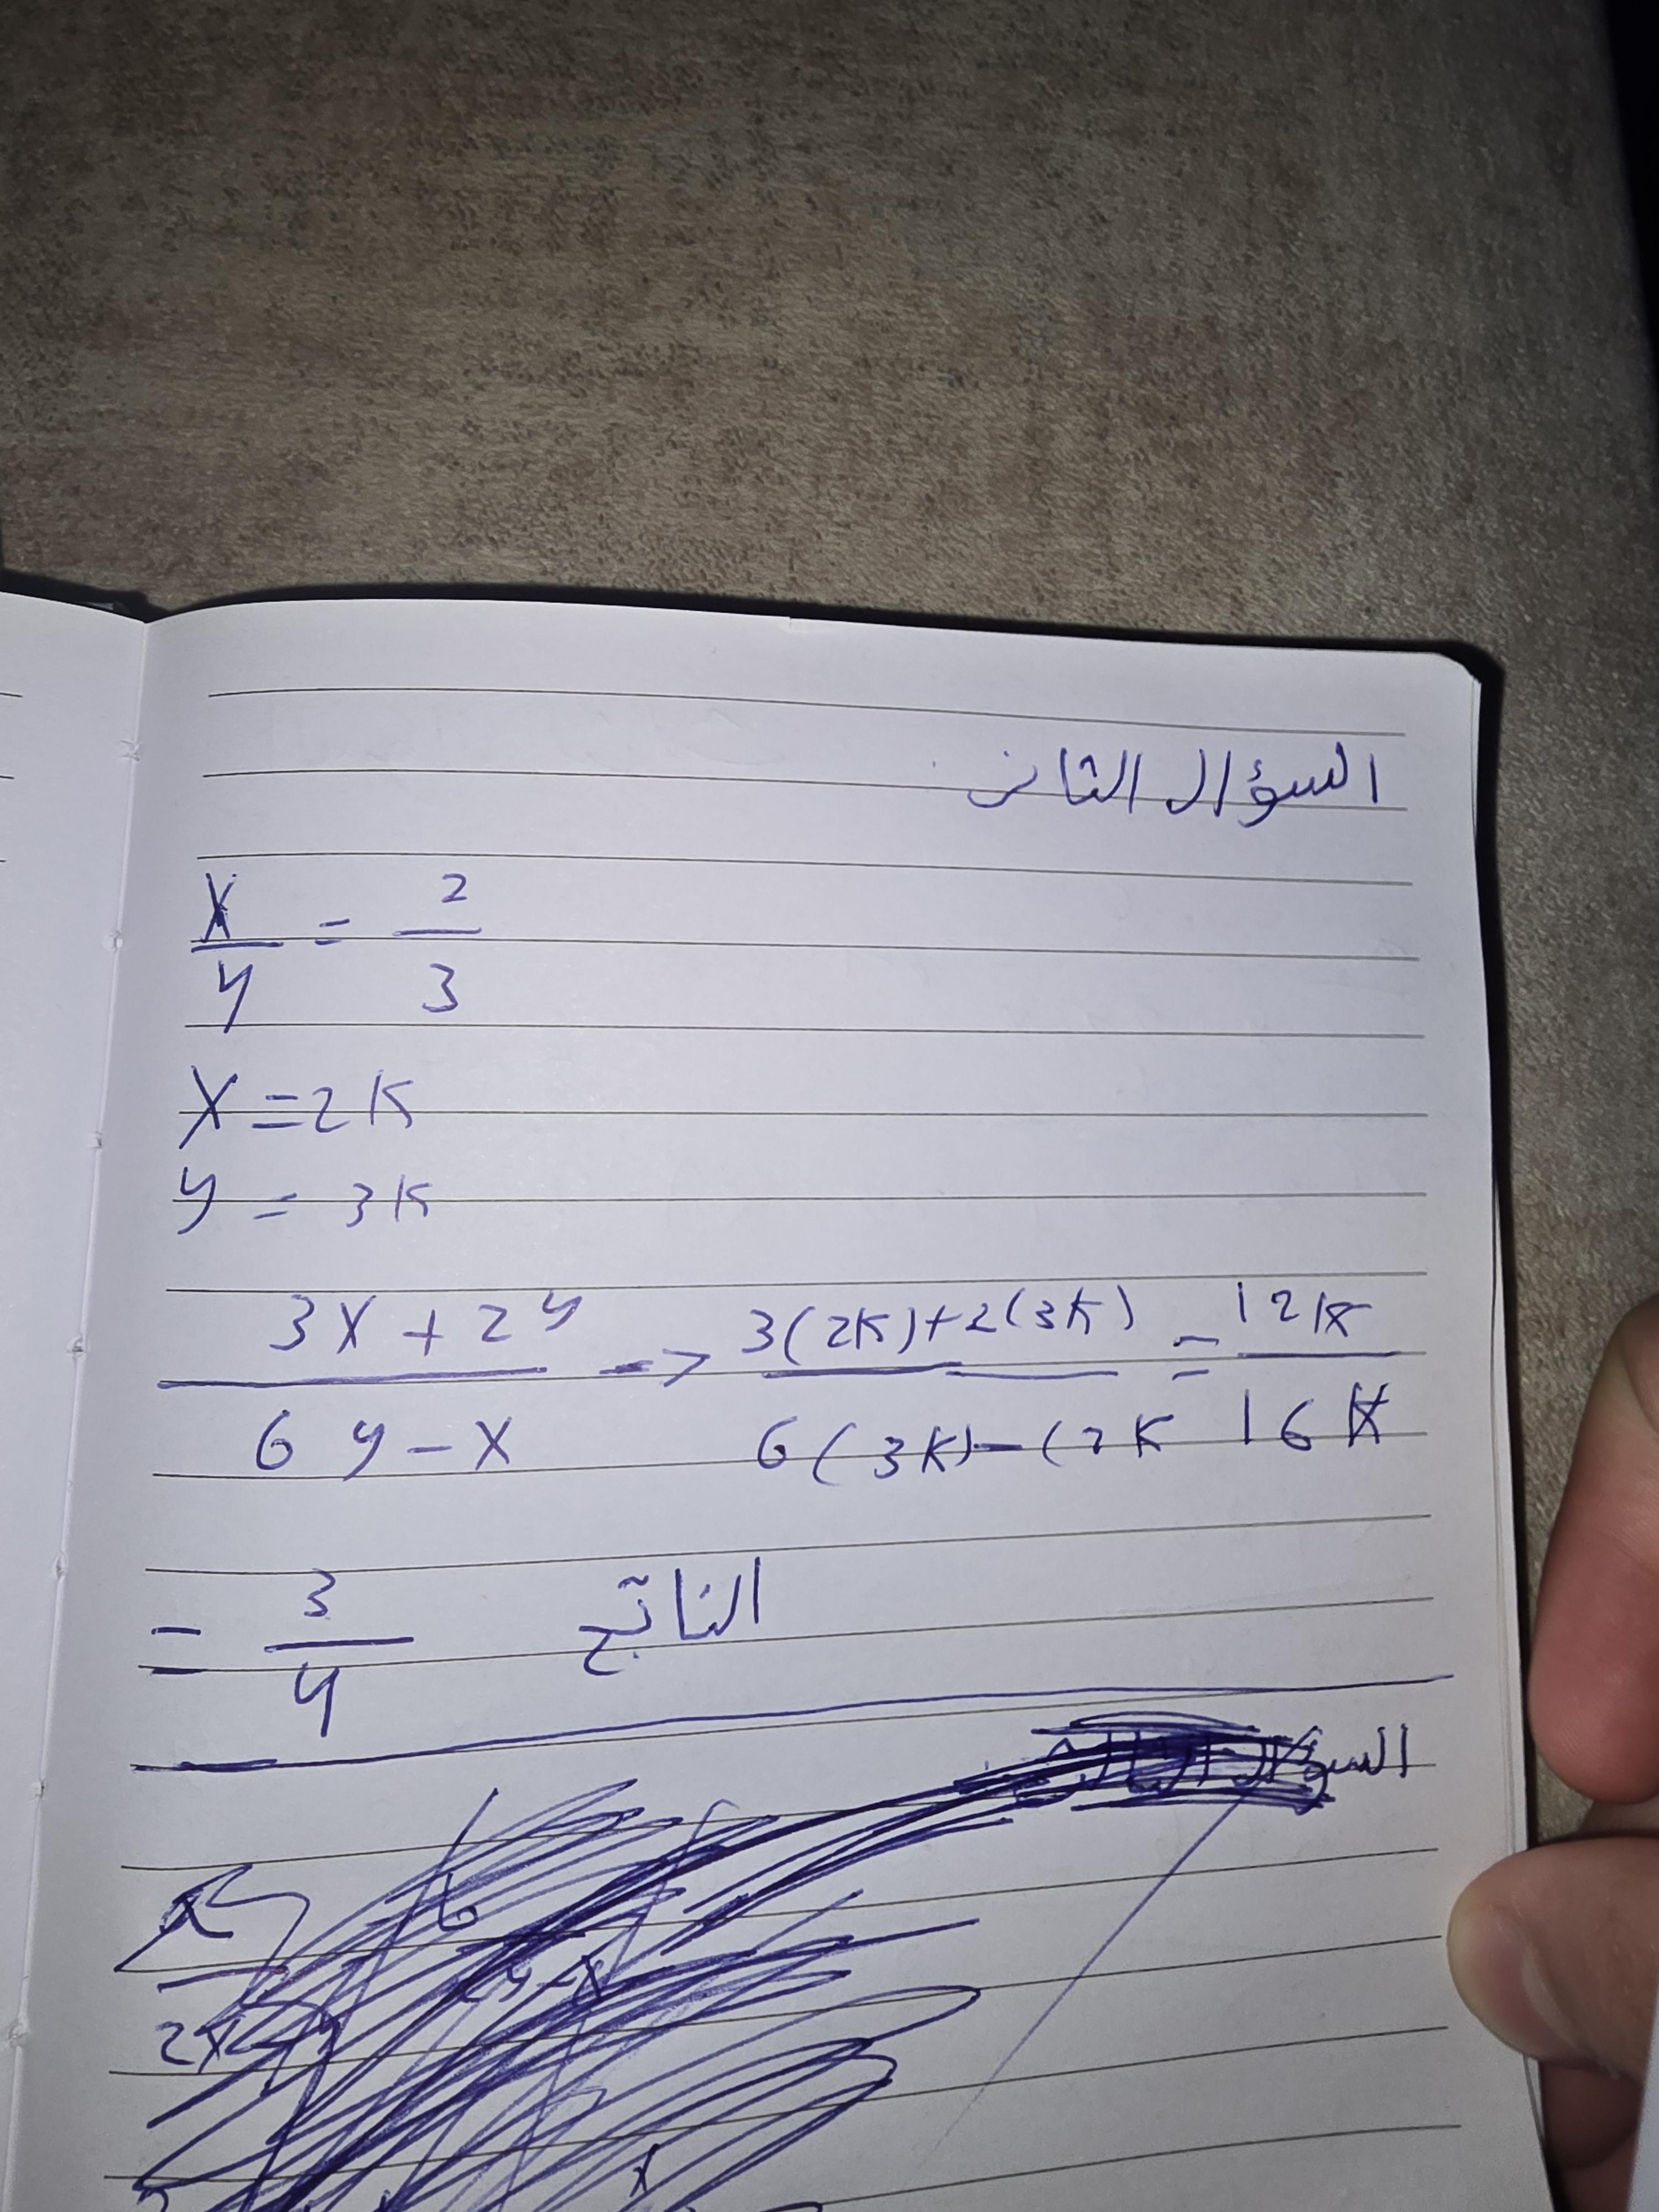 السؤال الثاني
X/y = 2/3
X = 2K
y = 3K
(3X + 2y)/(6y - X) -> (3(2K)+2(3K))/(6(3K)-(2K) = 12K/16K
= 3/4 الناتج
السؤال